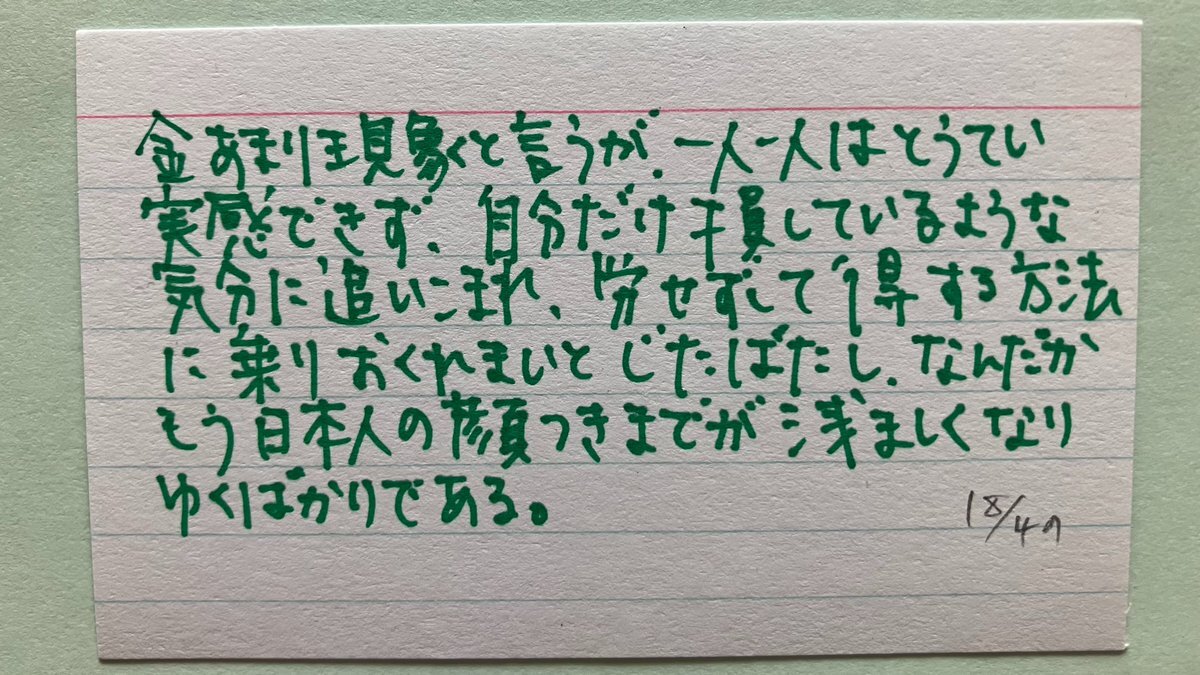 金あまり現象と言うが、一人一人はとうてい
実感できず、自分だけ損しているような
気分に追いこまれ、労せずして得する方法
に乗りおくれまいとじたばたし、なんだか
もう日本人の顔つきまでが浅ましくなり
ゆくばかりである。
18/49